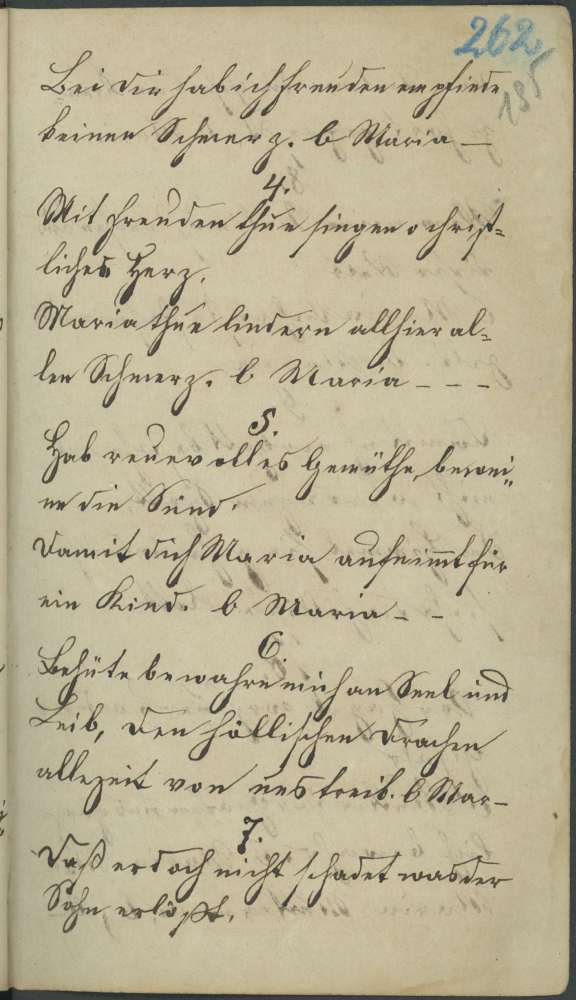 262
195
Bei dir hab ich freuden empfinde
keinen Schmerz. b Maria —
4.
Mit freuden thue singen o christ=
liches Herz.
Maria thue lindern allhier al=
len Schmerz. b Maria - - -
5.
Hab reuevolles Gemüthe, bewei=
ne die Sünd.
Damit dich Maria aufnimt für
ein Kind. b Maria - -
6.
Behüte bewahre mich an Seel und
Leib, den höllischen Drachen
allezeit von uns treib. b Mar-
7.
Daß er doch nicht schadet was der
Sohn erlößt.